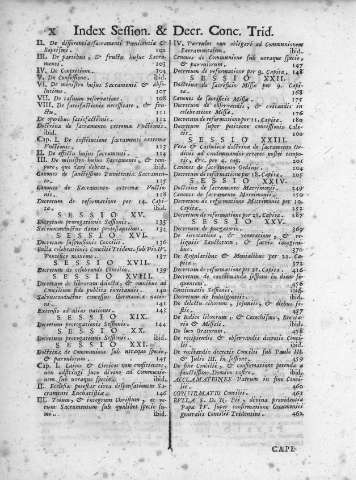 x Index Session. & Decr. Conc. Trid.
II. De differentia Sacramenti Pœnitentiæ &
Baptismi. 102
III. De partibus, & fructu hujus Sacra-
menti. 103
IV. De Contritione. 104
V. De Confessione. ibid.
VI. De ministro hujus Sacramenti & abso-
lutione. 107
VII. De casuum reservatione. 108
VIII. De satisfactionis necessitate, & fru-
ctu. 111
De operibus satisfactionis. 112
Doctrina de Sacramento extremæ Unctionis.
ibid.
Cap. I. De institutione Sacramenti extremæ
Unctionis. 113
II. De effectu hujus Sacramenti. 114
III. De ministro hujus Sacramenti, & tem-
pore, quo dari debeat.
Canones de Sanctissimo Pœnitentiæ Sacramen-
to.
Canones de Sacramento extremæ Unctio-
nis.
Decretum de reformatione per 14. Capi-
ta. ibid.
SESSIO XV.
Decretum prorogationis Sessionis. 134
Salvusconductus datus Protestantibus.
SESSIO XVI.
Decretum suspensionis Concilii. 136
Bulla celebrationis Concilii Trident. sub Pio IV.
Pontifice maximo. 137
SESSIO XVII.
Decretum de celebrando Concilio. 139
SESSIO XVIII.
Decretum de librorum delectu, & omnibus ad
Concilium fide publica invitandis. 140
Salvusconductus concessus Germanicæ natio-
ni. 141
Extensio ad alias nationes. 143
SESSIO XIX.
Decretum prorogationis Sessionis. 144
SESSIO XX.
Decretum prorogationis Sessionis. ibid.
SESSIO XXI.
Doctrina de Communione sub utraque specie,
& parvulorum. 145
Cap. I. Laicos & Clericos non conficientes,
non adstringi jure divino ad Communio-
nem sub utraque specie. ibid.
II. Ecclesiæ potestas circa dispensationem Sa-
cramenti Eucharistiæ. 146
III. Totum, & integrum Christum, ac ve-
rum Sacramentum sub qualibet specie su-
mi. ibid.
IV. Parvulos non obligari ad Communionem
Sacramentalem. ibid.
Canones de Communione sub utraque specie,
& parvulorum. 147
Decretum de reformatione per 9. Capita. 148
SESSIO XXII.
Doctrina de Sacrificio Missæ per 9. Capita.
168
Canones de Sacrificio Missæ. 175
Decretum de observandis, & evitandis in
celebratione Missæ. 176
Decretum de reformatione per 11. Capita. 180
Decretum super petitione concessionis Cali-
cis.
SESSIO XXIII.
Vera & Catholica doctrina de Sacramento Or-
dinis ad condemnandos errores nostri tempo-
ris, &c. per 4. cap. 201
Canones de Sacramento Ordinis. 204
Decretum de reformatione per 18. Capita. 205
SESSIO XXIV.
Doctrina de Sacramento Matrimonii. 249
Canones de Sacramento Matrimonii.
Decretum de reformatione Matrimonii per 10.
Capita.
Decretum de reformatione per 21. Capita. 287
SESSIO XXV.
Decretum de purgatorio. 369
De invocatione, & veneratione, & re-
liquiis Sanctorum, & sacris imagini-
bus. 370
De Regularibus & Monialibus per 22. Ca-
pita. 372
Decretum de reformatione per 21. Capita. 416
Decretum de continuanda sessione in diem se-
quentem.
Continuatio Sessionis. ibid.
Decretum de Indulgentiis. ibid.
De delectu ciborum, jejuniis, & diebus fe-
stis. 457
De Indice librorum, & Catechismo, Brevia-
rio & Missali. ibid.
De loco Oratorum. 458
De recipiendis & observandis decretis Concilii.
ibid.
De recitandis decretis Concilii sub Paulo III.
& Julio III. in Sessione. 459
De fine Concilii, & confirmatione petenda a
Sanctissimo Domino nostro. ibid.
ACCLAMATIONES Patrum in fine Conci-
lii. 460
CONFIRMATIO Concilii. 461
BULLA S. D. N. Pii, divina providentia
Papæ IV. super confirmatione Œcumenici
generalis Concilii Tridentini. 462
CAPI-